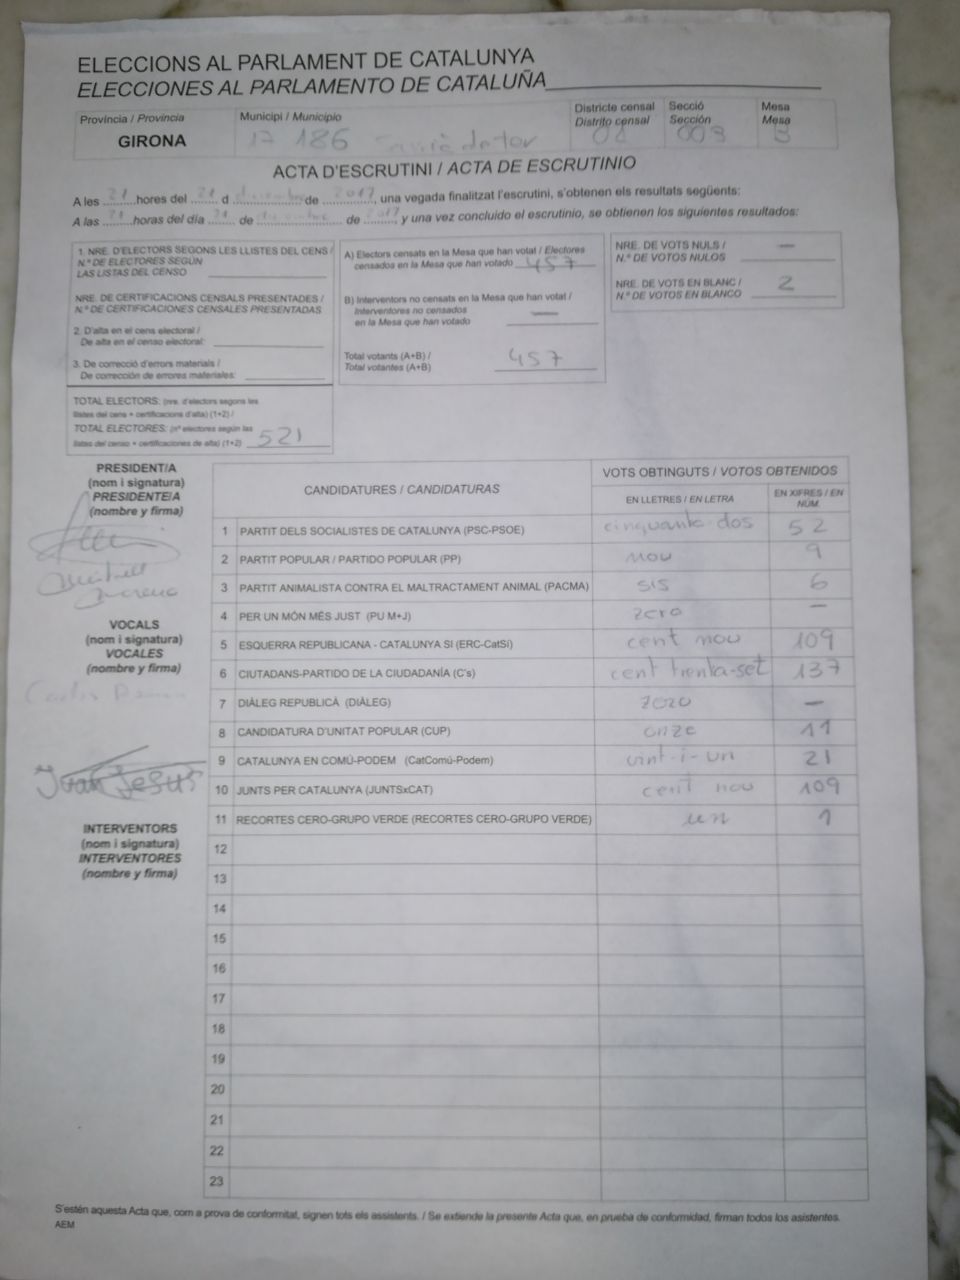 ELECCIONS AL PARLAMENT DE CATALUNYA
ELECCIONES AL PARLAMENTO DE CATALUÑA
Província / Provincia
GIRONA
Municipi / Municipio
17 186 Sarrià de Ter
Districte censal
Distrito censal
01
Secció
Sección
003
Mesa
Mesa
B
ACTA D'ESCRUTINI / ACTA DE ESCRUTINIO
A les 21 hores del 21 d desembre de 2017, una vegada finalitzat l'escrutini, s'obtenen els resultats següents:
A las 21 horas del día 21 de diciembre de 2017, y una vez concluido el escrutinio, se obtienen los siguientes resultados:
1. NRE. D'ELECTORS SEGONS LES LLISTES DEL CENS /
N.º DE ELECTORES SEGÚN
LAS LISTAS DEL CENSO
NRE. DE CERTIFICACIONS CENSALS PRESENTADES /
N.º DE CERTIFICACIONES CENSALES PRESENTADAS
2. D'alta en el cens electoral /
De alta en el censo electoral:
3. De correcció d'errors materials /
De corrección de errores materiales:
TOTAL ELECTORS: (nre. d'electors segons les
llistes del cens + certificacions d'alta) (1+2) /
TOTAL ELECTORES: (nº electores según las
listas del censo + certificaciones de alta) (1+2) 521
A) Electors censats en la Mesa que han votat / Electores
censados en la Mesa que han votado 457
B) Interventors no censats en la Mesa que han votat /
Interventores no censados
en la Mesa que han votado —
Total votants (A+B) /
Total votantes (A+B) 457
NRE. DE VOTS NULS /
N.º DE VOTOS NULOS —
NRE. DE VOTS EN BLANC /
N.º DE VOTOS EN BLANCO 2
PRESIDENT/A
(nom i signatura)
PRESIDENTE/A
(nombre y firma)
VOCALS
(nom i signatura)
VOCALES
(nombre y firma)
Joan Jesus
INTERVENTORS
(nom i signatura)
INTERVENTORES
(nombre y firma)
CANDIDATURES / CANDIDATURAS
VOTS OBTINGUTS / VOTOS OBTENIDOS
EN LLETRES / EN LETRA
EN XIFRES / EN
NÚM.
1 PARTIT DELS SOCIALISTES DE CATALUNYA (PSC-PSOE) cinquanta-dos 52
2 PARTIT POPULAR / PARTIDO POPULAR (PP) nou 9
3 PARTIT ANIMALISTA CONTRA EL MALTRACTAMENT ANIMAL (PACMA) sis 6
4 PER UN MÓN MÉS JUST (PU M+J) zero —
5 ESQUERRA REPUBLICANA - CATALUNYA SI (ERC-CatSí) cent nou 109
6 CIUTADANS-PARTIDO DE LA CIUDADANÍA (C's) cent trenta-set 137
7 DIÀLEG REPUBLICÀ (DIÀLEG) zero —
8 CANDIDATURA D'UNITAT POPULAR (CUP) onze 11
9 CATALUNYA EN COMÚ-PODEM (CatComú-Podem) vint-i-un 21
10 JUNTS PER CATALUNYA (JUNTSxCAT) cent nou 109
11 RECORTES CERO-GRUPO VERDE (RECORTES CERO-GRUPO VERDE) un 1
12
13
14
15
16
17
18
19
20
21
22
23
S'estén aquesta Acta que, com a prova de conformitat, signen tots els assistents. / Se extiende la presente Acta que, en prueba de conformidad, firman todos los asistentes.
AEM